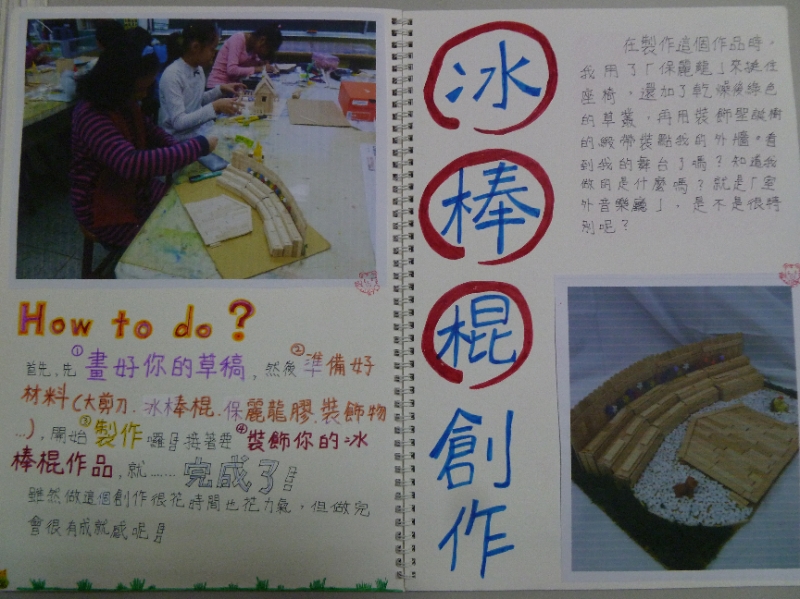 How to do?
首先,先①畫好你的草稿,然後②準備好
材料(大剪刀、冰棒棍、保麗龍膠、裝飾物
…),開始③製作囉!接著要④裝飾你的冰
棒棍作品,就……完成了!
雖然做這個創作很花時間也花力氣,但做完
會很有成就感呢!
冰
棒
棍
創
作
在製作這個作品時,
我用了「保麗龍」來撐住
座椅,還加了乾燥後綠色
的草叢,再用裝飾聖誕樹
的緞帶裝點我的外牆。看
到我的舞台了嗎?知道我
做的是什麼嗎?就是「室
外音樂廳」,是不是很特
別呢?